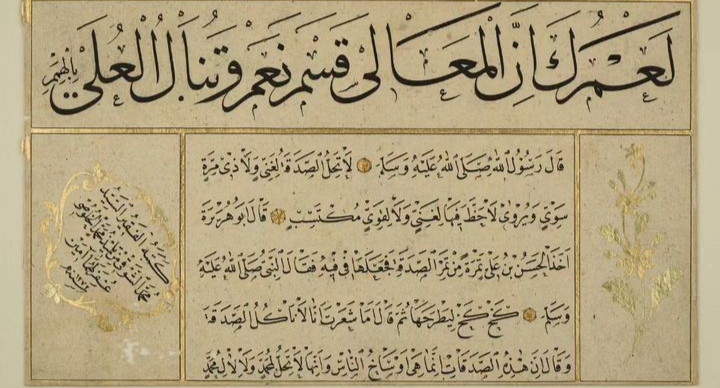 لَعَمْرُكَ اِنَّ الْمَعَالِى قِسَمٌ نَعَمْ وَتُنَالُ الْعُلَى بِالْهِمَمِ
قَالَ رَسُولُ اللهِ صَلَّى اللهُ عَلَيْهِ وَسَلَّمَ لَا تَحِلُّ الصَّدَقَةُ لِغَنِىٍّ وَلَا ذِى مِرَّةٍ
سَوِىٍّ وَيُرْوَى لَاحَظَّ فِيهَا لِغَنِىٍّ وَلَا لِقَوِىٍّ مُكْتَسِبٍ قَالَ اَبُو هُرَيْرَةَ
اَخَذَ الْحَسَنُ بْنُ عَلِىٍّ تَمْرَةً مِنْ تَمْرِ الصَّدَقَةِ فَجَعَلَهَا فِى فِيهِ فَقَالَ النَّبِىُّ صَلَّى اللهُ عَلَيْهِ
وَسَلَّمَ كَخْ كَخْ لِيَطْرَحَهَا ثُمَّ قَالَ اَمَا شَعَرْتَ اَنَّا لَا نَأْكُلُ الصَّدَقَةَ
وَقَالَ اِنَّ هٰذِهِ الصَّدَقَاتِ اِنَّمَا هِىَ اَوْسَاخُ النَّاسِ وَاِنَّهَا لَا تَحِلُّ لِمُحَمَّدٍ وَلَا لِاٰلِ مُحَمَّدٍ
كتبه الفقير السيد